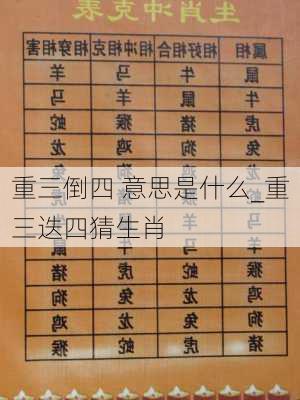 生肖冲克表
属相 相好相合 相冲相克 相穿相害
鼠 牛 马 羊
牛 鼠 羊 马
虎 猪 猴 蛇
兔 狗 鸡 龙
重三倒四,意思是什么_重
三迭四猜生肖
猴 蛇 虎 猪
鸡 龙 兔 狗
狗 兔 龙 鸡
猪 虎 蛇 猴